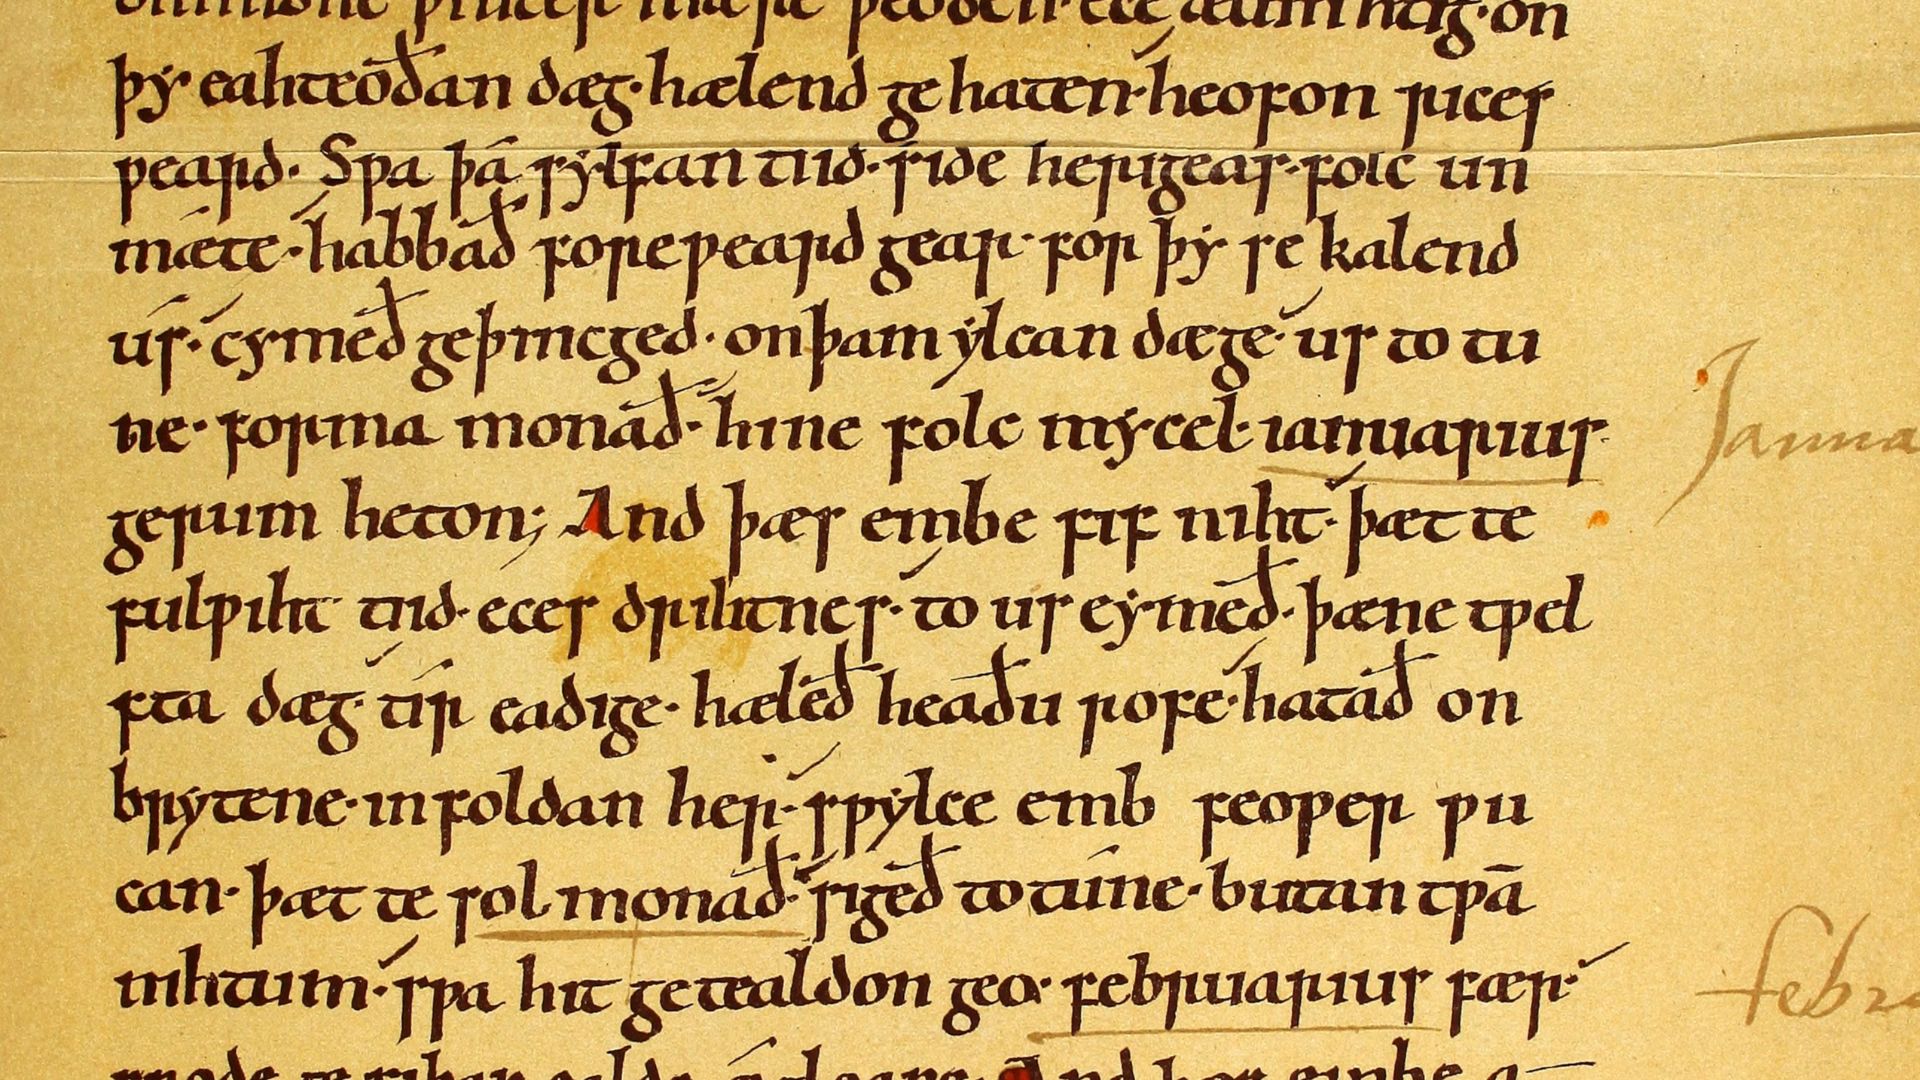 ece ælmihtig·on
þy eahteoðan dæg·hælend ge haten·heofon rices
ƿeard· Sƿa þa sylfan tiid·side herigeas·folc un
mæte·habbað foreƿeard gear·for þy se kalend
us·cymeð geþincged·onþam ylcan dæge·us to tu
ne·forma monað·hine folc mycel·ianuarius·
gerum heton; And þæs embe fif niht·þæt te
fulƿiht tiid·eces drihtnes·to us cymeð·þæne tƿel
fta dæg·tir eadige·hæleð heaðu rofe·hatað on
brytene·in foldan her·sƿylce emb feoƿer ƿu
can·þæt te sol monað·sigeð to tune·butan tƿā
nihtum·sƿa hit getealdon geo·februarius fær·
And þæs embe a
Janua
febr